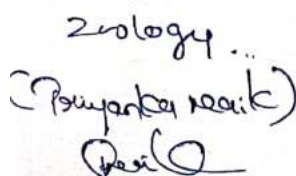 Zoology...
(Priyanka naik)